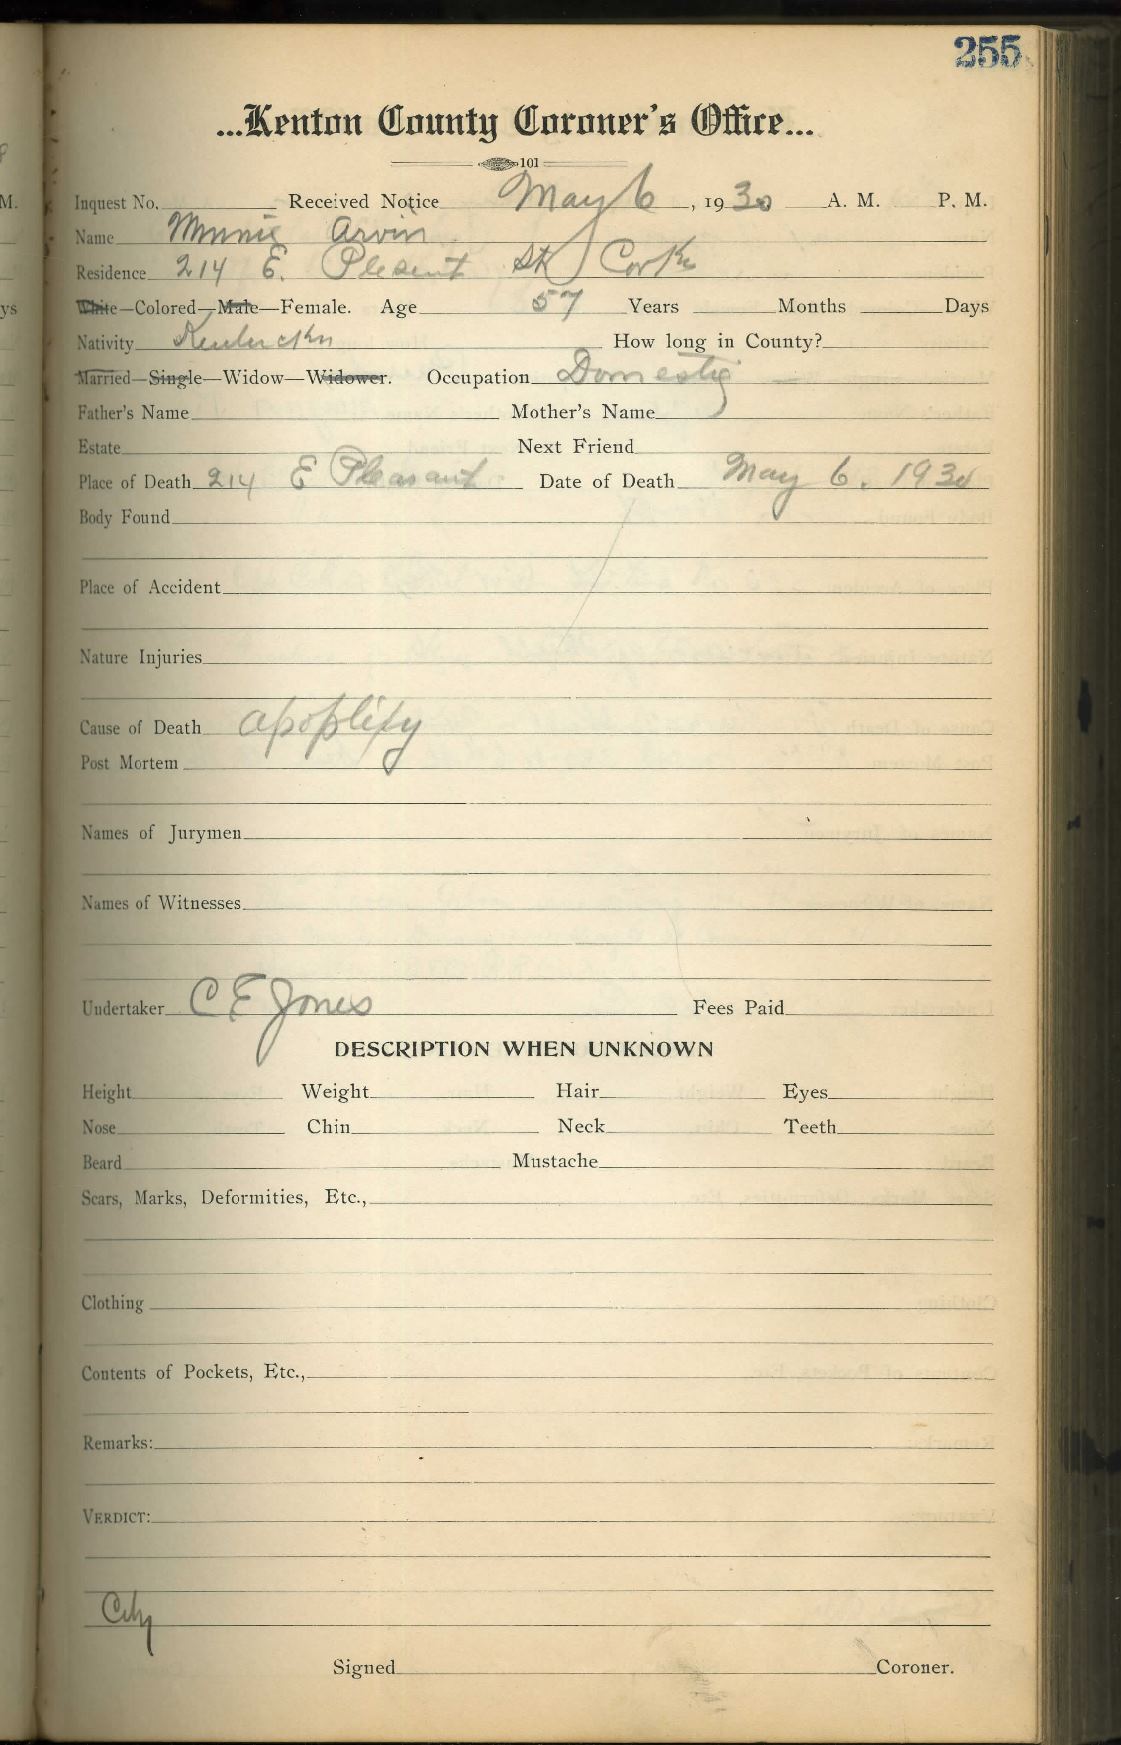 255
...Kenton County Coroner's Office...
101
Inquest No. Received Notice May 6, 1930 A. M. P. M.
Name Minnie Arvin
Residence 214 E. Plesent St Cov Ky
White—Colored—Male—Female. Age 57 Years Months Days
Nativity Kentucky How long in County?
Married—Single—Widow—Widower. Occupation Domestic
Father's Name Mother's Name
Estate Next Friend
Place of Death 214 E Pleasant Date of Death May 6. 1930
Body Found
Place of Accident
Nature Injuries
Cause of Death apoplify
Post Mortem
Names of Jurymen
Names of Witnesses
Undertaker C E Jones Fees Paid
DESCRIPTION WHEN UNKNOWN
Height Weight Hair Eyes
Nose Chin Neck Teeth
Beard Mustache
Scars, Marks, Deformities, Etc.,
Clothing
Contents of Pockets, Etc.,
Remarks:
VERDICT:
City
Signed Coroner.